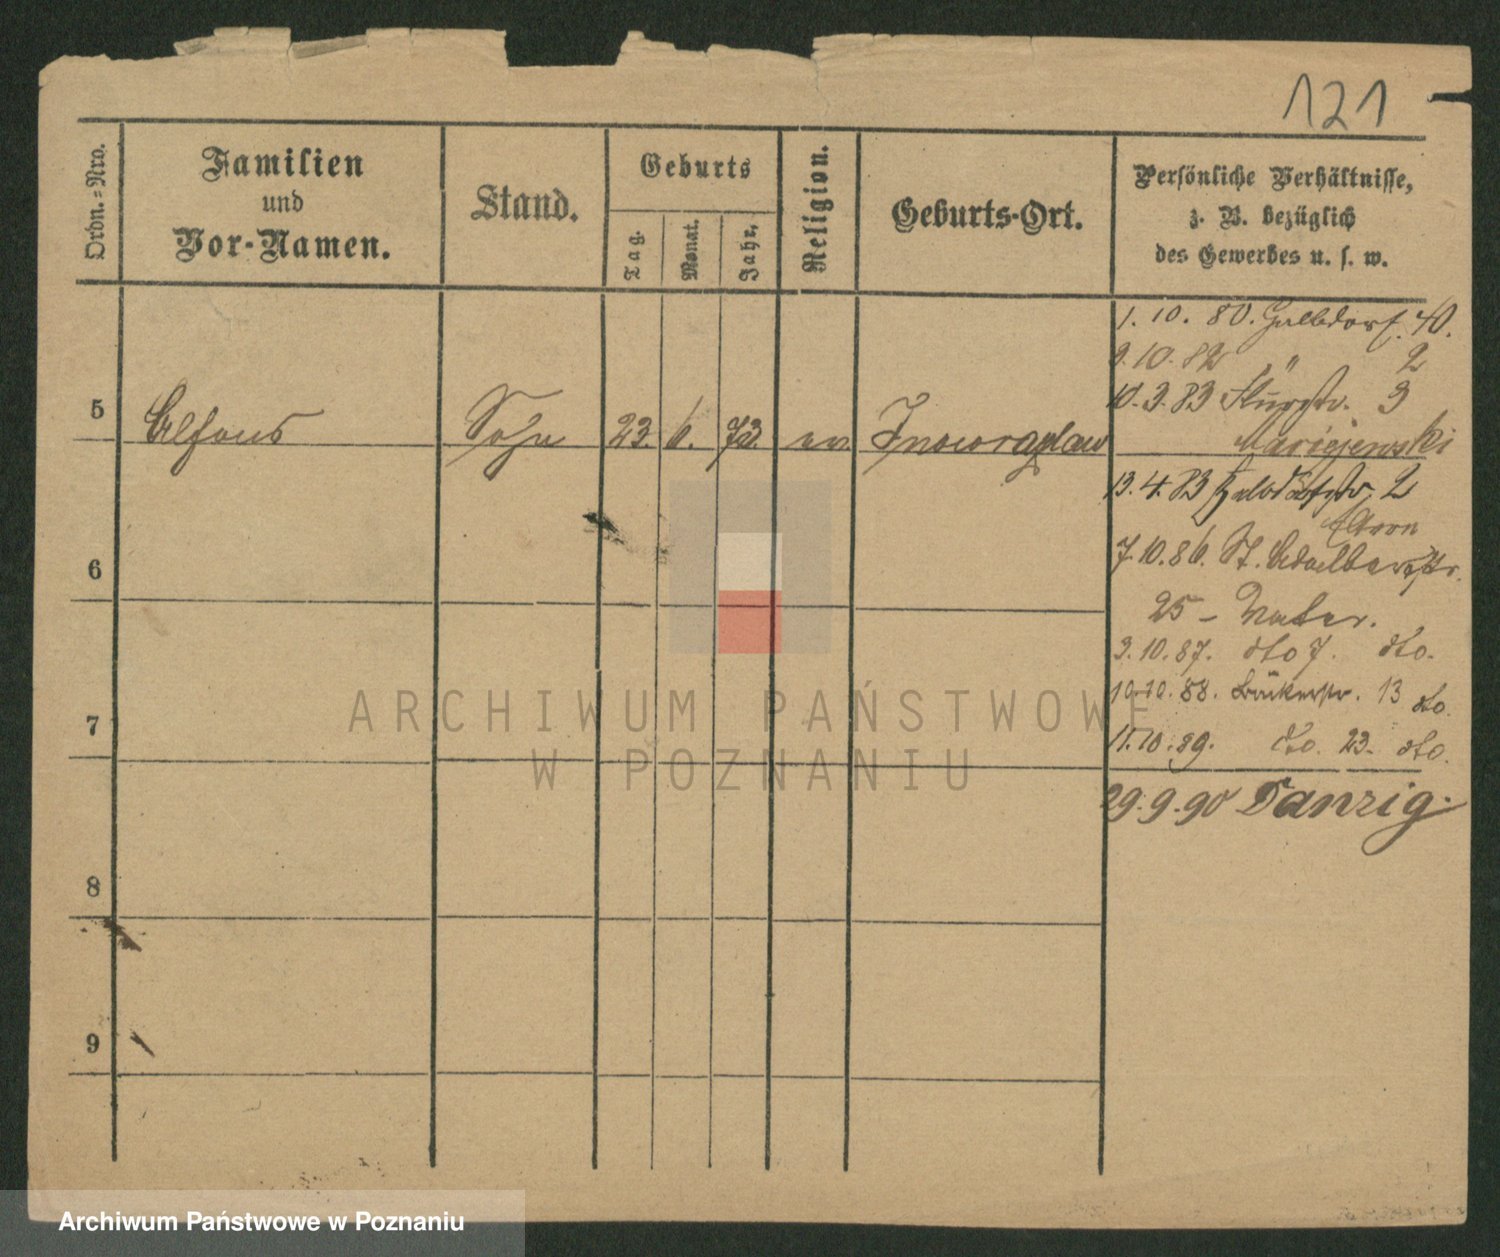 121
Ordn.=Nro.
Familien
und
Vor-Namen.
Stand.
Geburts
Tag.
Monat.
Jahr.
Religion.
Geburts-Ort.
Persönliche Verhältnisse,
z. B. bezüglich
des Gewerbes u. s. w.
1. 10. 80. Halbdorf. 40.
2. 10. 82 " 2
10. 3. 83 3
5 Alfons Sohn 23. 6. 72. ev. Inowrazlaw
13. 4. 83 Halbdorfstr. 2
Aron
6
7. 10. 86. St. Adalbertstr.
25 - Vater.
3. 10. 87. dto 7. dto.
10. 10. 88. Bäckerstr. 13 dto.
7
11. 10. 89. dto. 23. dto.
29. 9. 90 Danzig.
8
9
ARCHIWUM PAŃSTWOWE
W POZNANIU
Archiwum Państwowe w Poznaniu